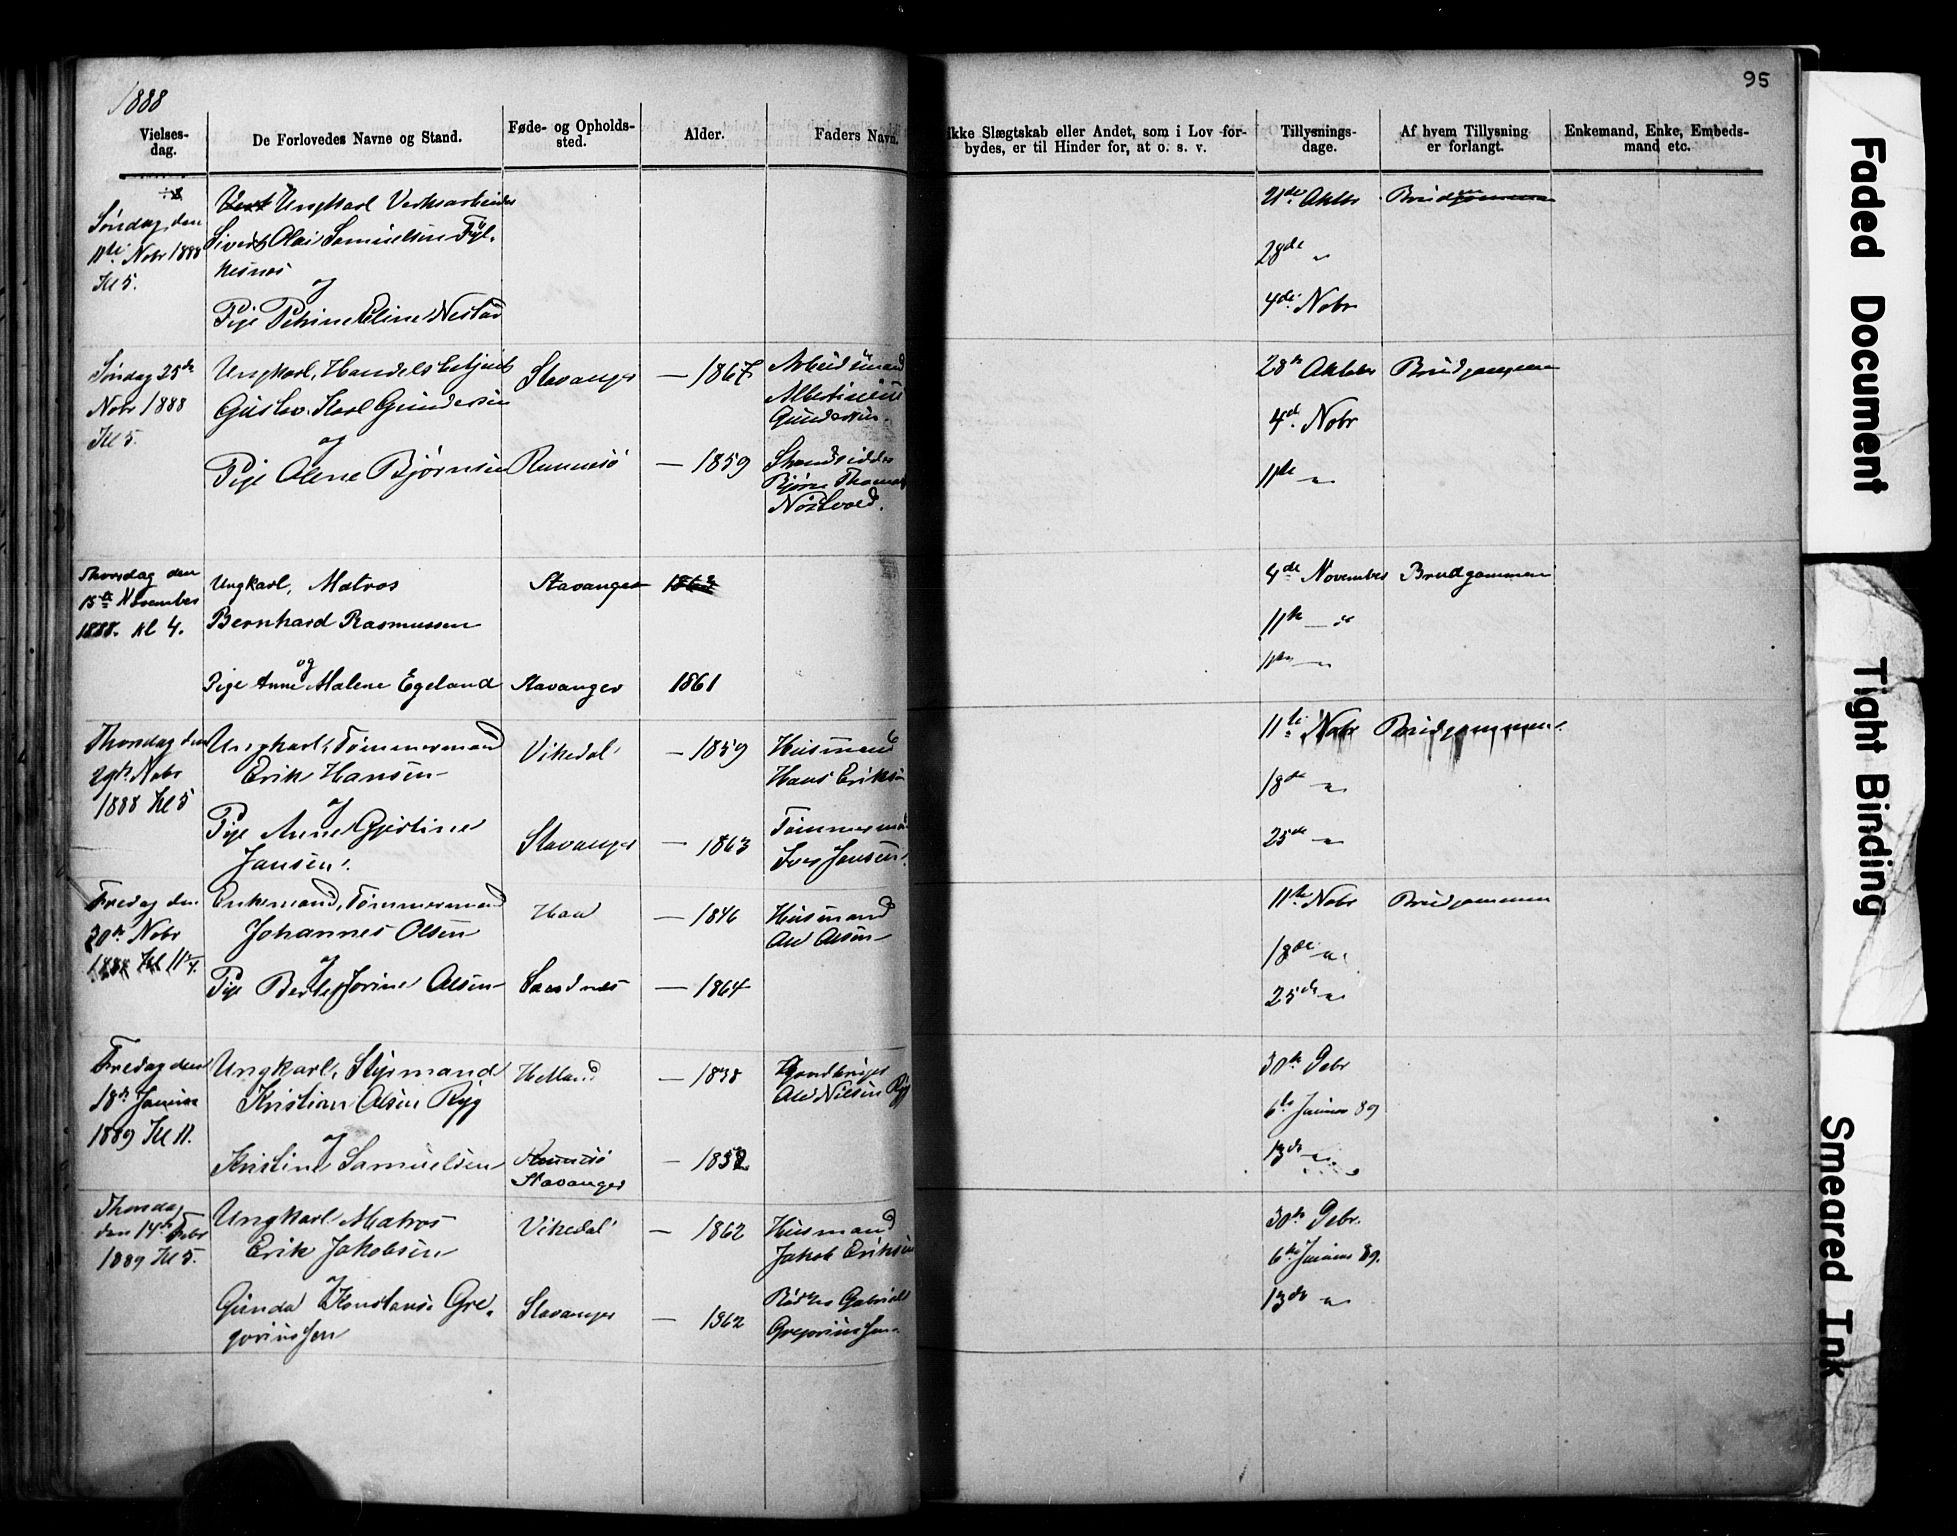 1888
95
Vielses-
dag.
De Forlovedes Navne og Stand.
Føde- og Opholds-
sted.
Alder.
Faders Navn.
ikke Slægtskab eller Andet, som i Lov for-
bydes, er til Hinder for, at o. s. v.
Tillysnings-
dage.
Af hvem Tillysning
er forlangt.
Enkemand, Enke, Embeds-
mand etc.
Søndag den
11te Nobr 1888
Kl 5.
Ungkarl Verksarbeider
Sivert Olai Samuelsen Fyl-
kesnes
og
Pige Petrine Eline Nestad
21de Oktbr
28de "
4de Nobr
Brudgommen
Søndag 25de
Nobr 1888
Kl 5.
Ungkarl, Handelsbetjent
Gustav Karl Gundersen
og
Pige Olene Bjørnsen
Stavanger
Rennesø
— 1867
— 1859
Arbeidsmand
Albertinius
Gundersen.
Strandsidder
Bjørn Thomas
28de Oktober
4de Nobr
11te "
Brudgommen
Thorsdag den
15de November
1888. kl 4.
Ungkarl, Matros
Bernhard Rasmussen
og
Pige Anne Malene Egeland
Stavanger
Stavanger
1861
4de November
11te — "
Brudgommen
Thorsdag den
29de Nobr
1888 Kl 5
Ungkarl, Tømmermand
Erik Hansen
og
Pige Anne Gjertine
Jansen.
Vikedal
Stavanger
— 1859
— 1863
Husmand
Hans Eriksen
Tømmermand
Iver Jansen.
11te Nobr
18de "
25de "
Brudgommen
Fredag den
30te Nobr
1888 Kl 11
Enkemand, Tømmermand
Johannes Olsen
og
Pige Berte Jorine Olsen
Haa
Sandnes
— 1846
— 1864
Husmand
Ole Olsen
11te Nobr
18de "
25de "
Brudgommen
Fredag den
18de Januar
1889 Kl 11.
Ungkarl, Styrmand
Kristian Olsen Ryg
og
Kristine Samuelsen
Hetland
Rennesø
Stavanger
— 1838
— 1852
Gaardbruger
Ole Nilsen Ryg
30te Debr
6te Januar 89
13de "
Thorsdag
den 14de Febr
1889 Kl 5.
Ungkarl, Matros
Erik Jakobsen
og
Gunda Konstanse Gre-
goriussen
Vikedal
Stavanger
— 1862
— 1862
Husmand
Jakob Eriksen
Gabriel
Gregoriussen.
30te Debr.
6te Januar 89.
13de "
Faded Document
Tight Binding
Smeared Ink